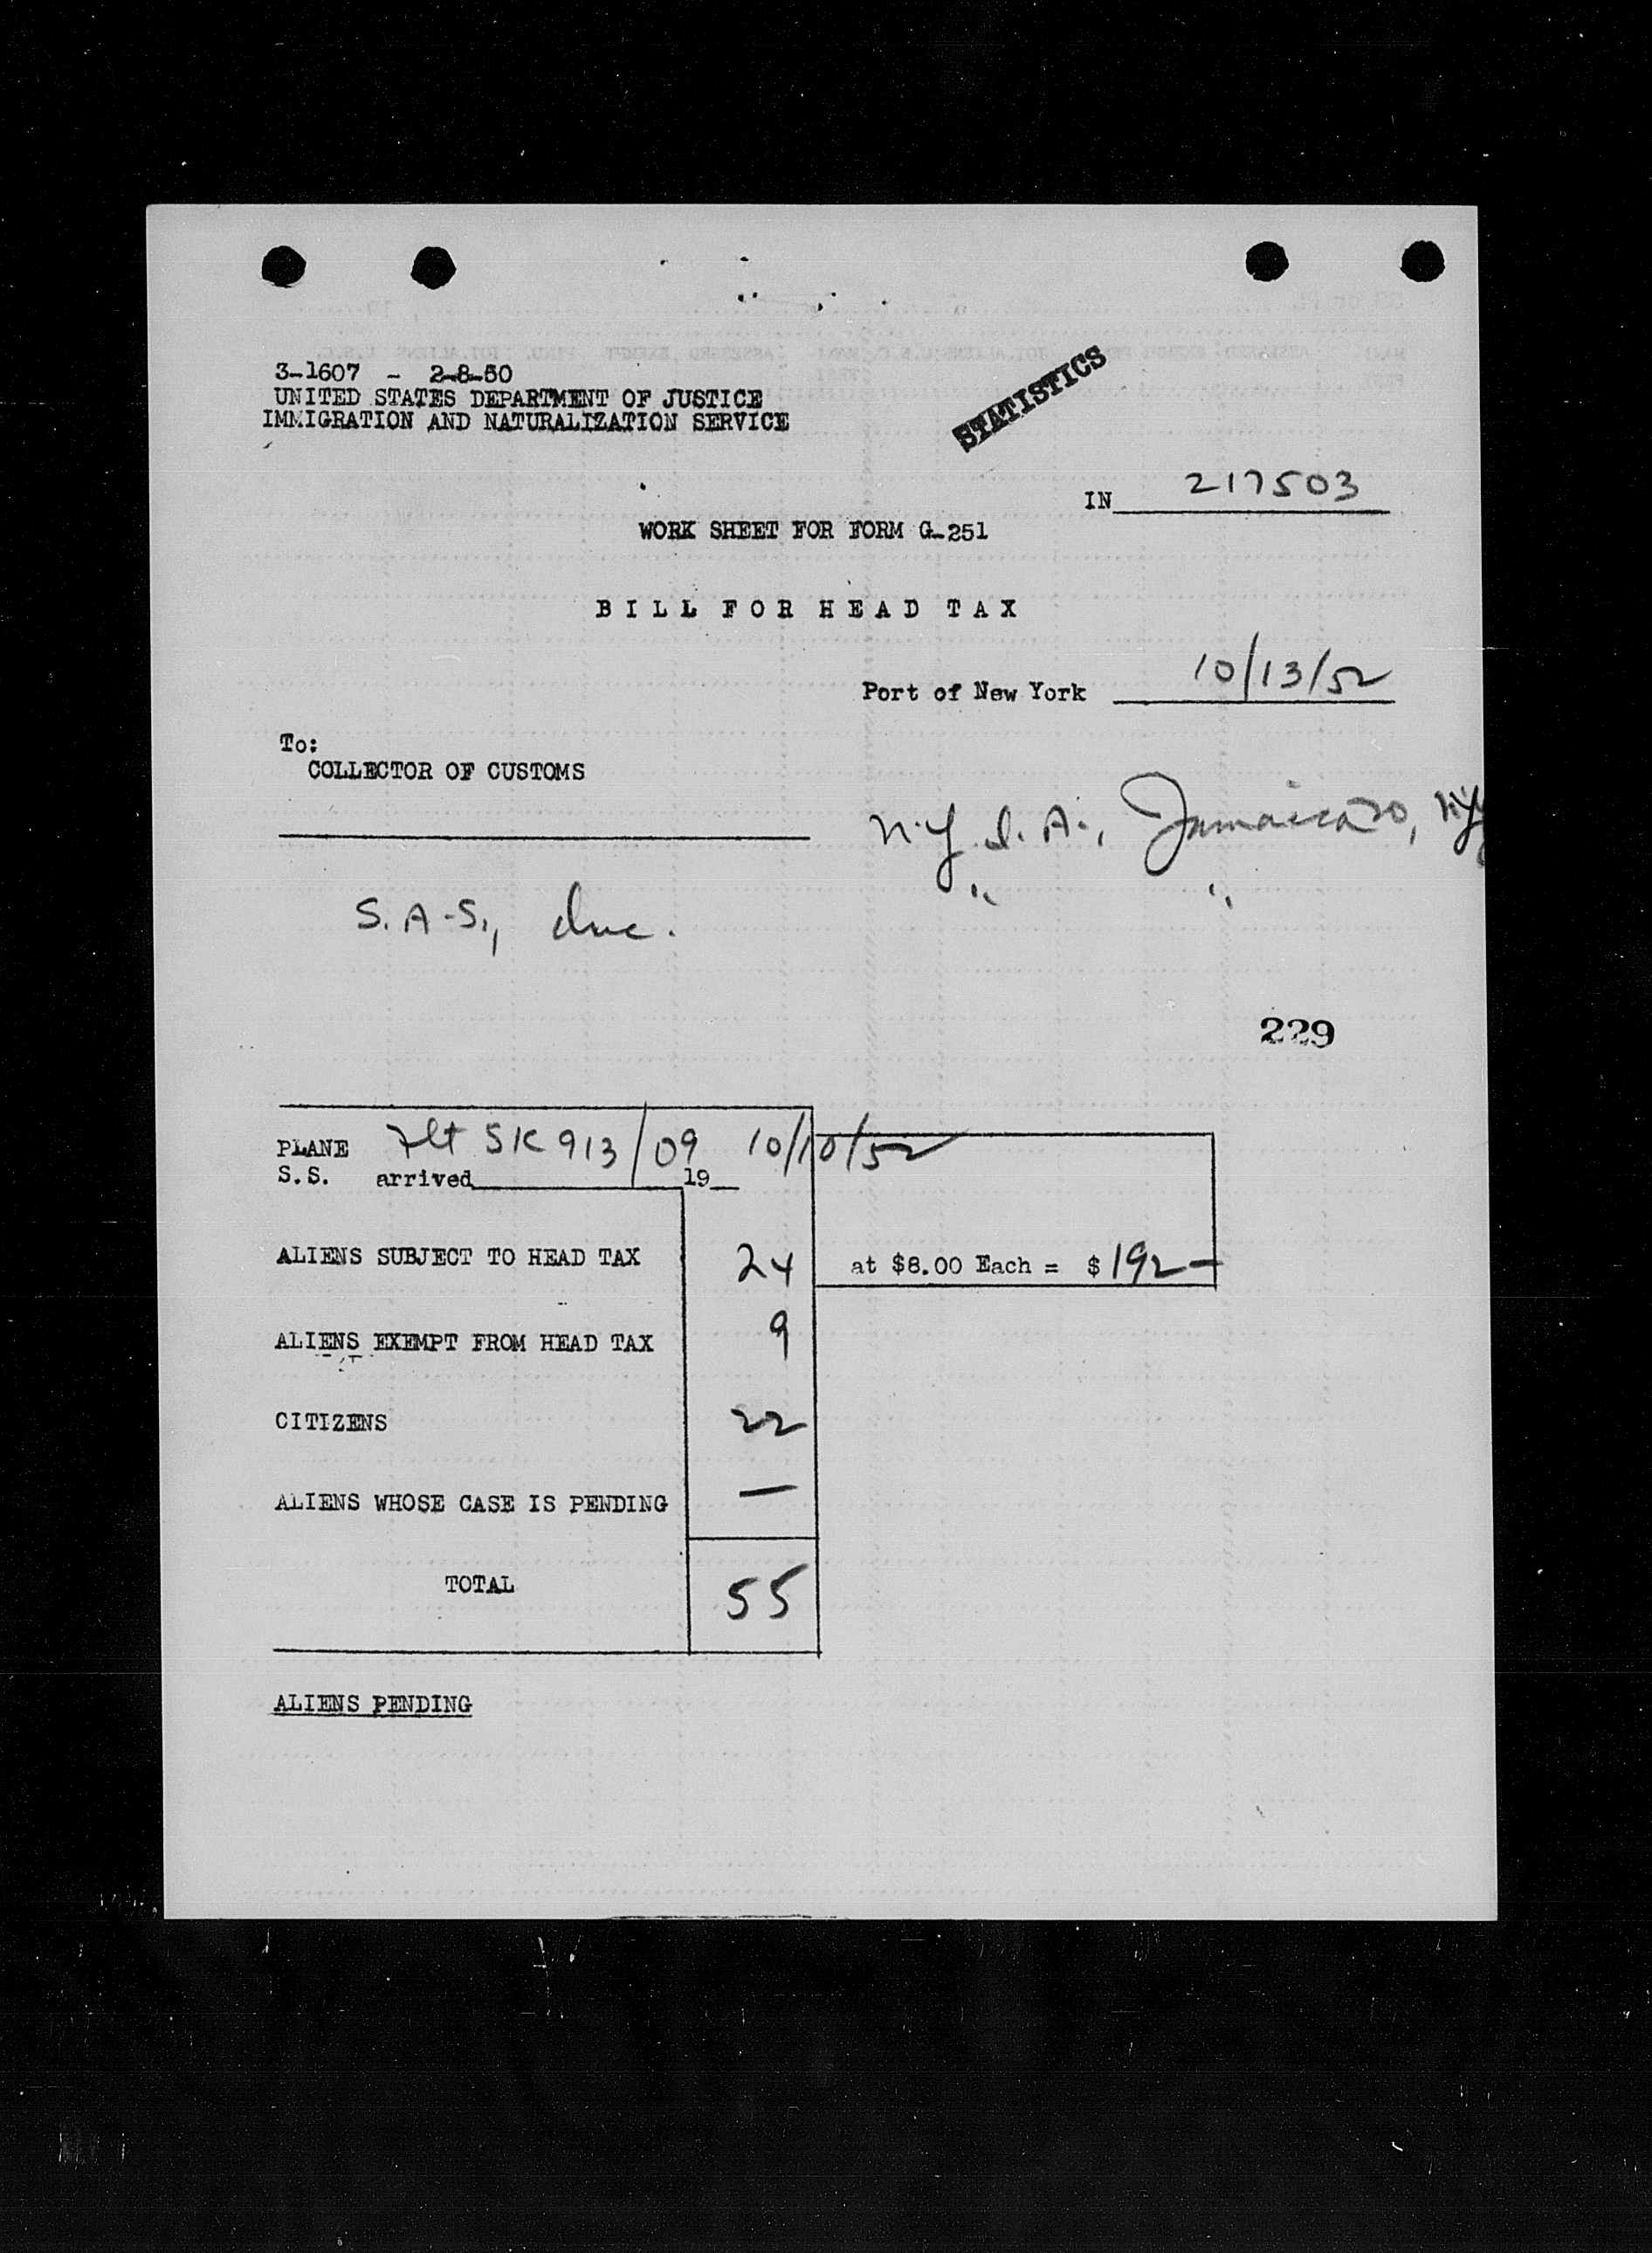 3-1607 - 2-8-50
UNITED STATES DEPARTMENT OF JUSTICE
IMMIGRATION AND NATURALIZATION SERVICE
STATISTICS
IN 217503
WORK SHEET FOR FORM G-251
BILL FOR HEAD TAX
Port of New York 10/13/52
To:
COLLECTOR OF CUSTOMS
N.Y. I. A., Jamaica 30, NY
" "
S.A.S., Inc.
229
PLANE Flt SK 913/09 10/10/52
S.S. arrived 19
ALIENS SUBJECT TO HEAD TAX 24 at $8.00 Each = $192-
ALIENS EXEMPT FROM HEAD TAX 9
CITIZENS 22
ALIENS WHOSE CASE IS PENDING —
TOTAL 55
ALIENS PENDING